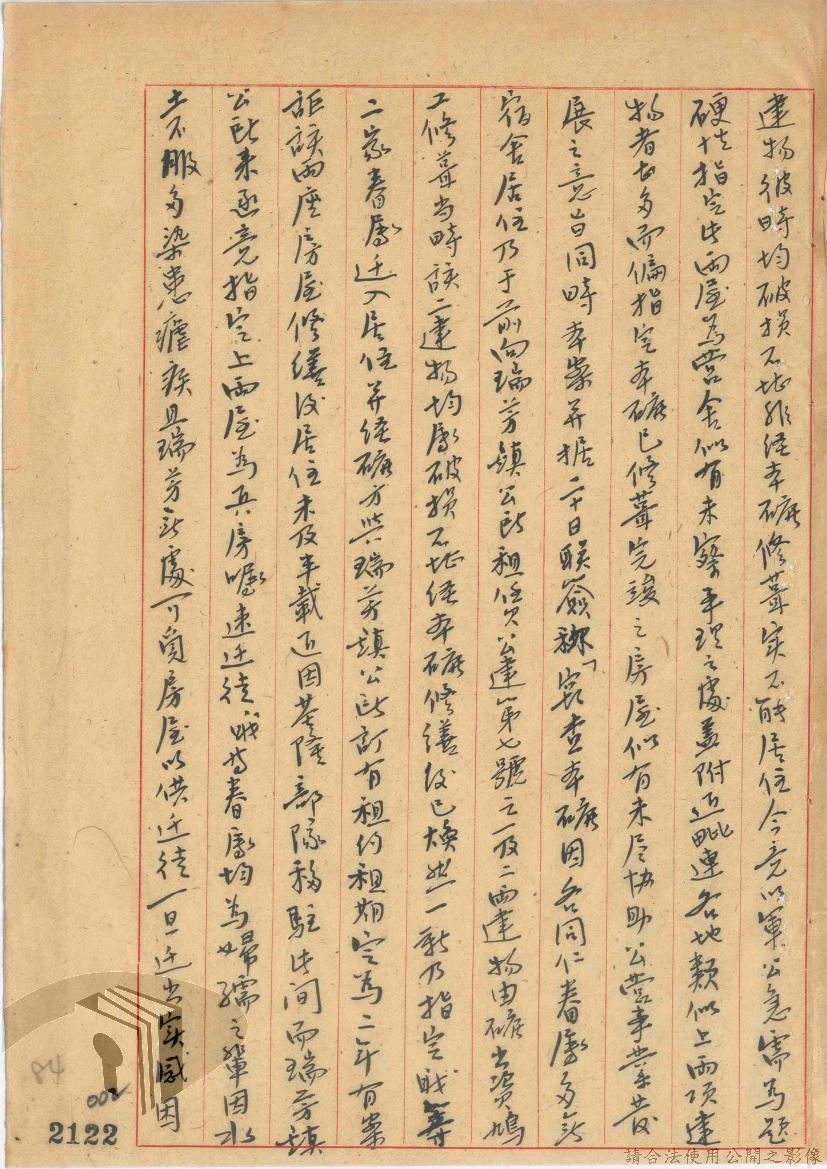 建物彼時均破損不堪非經本礦修葺实不能居住今竟以軍公急需為題
硬性指定此兩屋為营舍似有未察事理之處蓋附近毗連各地類似上兩項建
物者甚多而偏指定本礦已修葺完竣之房屋似有未尽協助公营事業发
展之意旨同時本案并据二十日联簽称「窃查本礦因各同仁眷屬多無
宿舍居住乃于前向瑞芳鎮公所租赁公建第七號之一及二兩建物由礦出資鳩
工修葺当時該二建物均屬破損不堪经本礦修繕後已煥然一新乃指定戝等
二家眷屬迁入居住并经礦方與瑞芳鎮公所訂有租约租期定為二年有案
詎該兩座房屋修繕後居住未及半載近因基隆部隊移駐此间而瑞芳鎮
公所未函竟指定上兩屋為兵房嘱速迁徒戝等眷屬均為婦孺之輩因水
土不服多染患瘧疾且瑞芳無處可覓房屋以供迁徒一旦迁出实感困
84
002
2122
請合法使用公開之影像